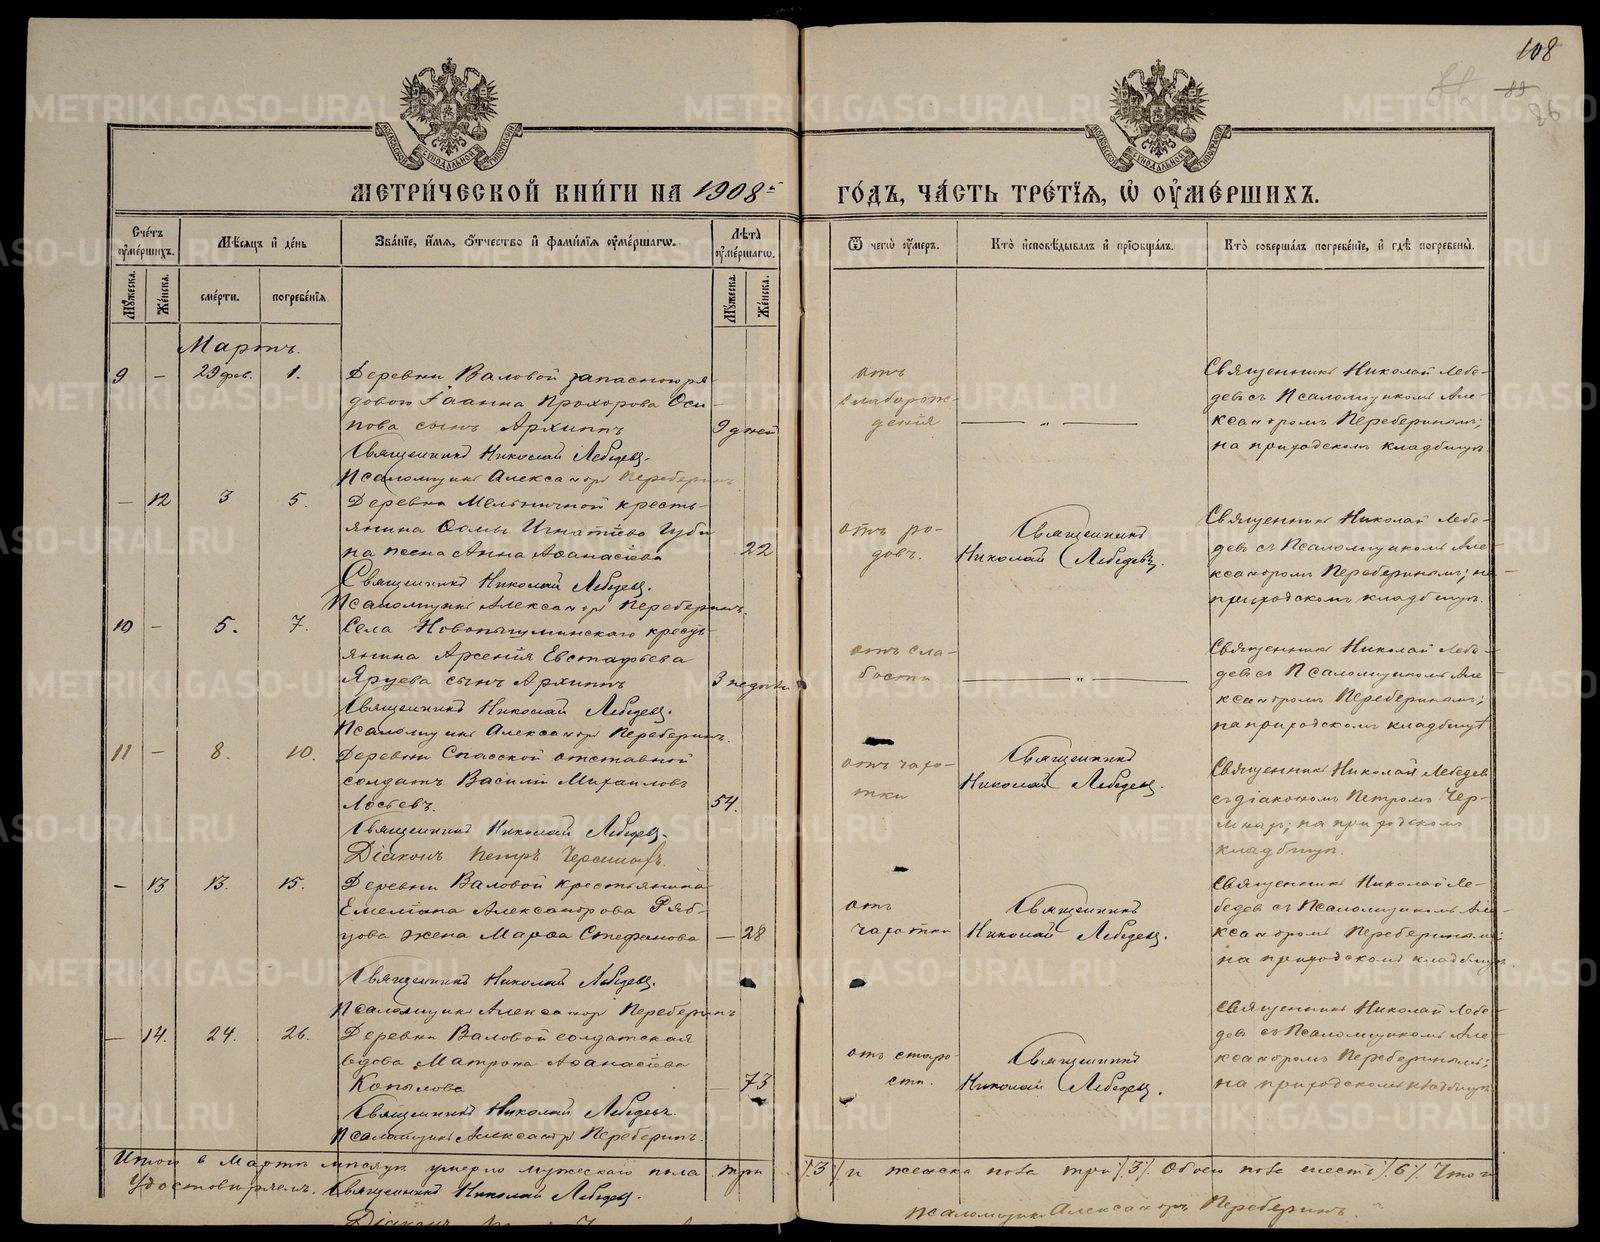 108
МЕТРИ́ЧЕСКОЙ КНИ́ГИ НА 1908й
ГО́ДЪ, ЧА́СТЬ ТРЕ́ТІѦ, Ѡ ОУ҆МЕ́РШИХЪ.
Сче́тъ оу҆ме́ршихъ.
Мѣ́сѧцъ и҆ де́нь
Зва́нїе, и҆́мѧ, ѻ҆́тчество и҆ фами́лїѧ оу҆ме́ршагѡ.
Лѣта̀ оу҆ме́ршагѡ.
Ѿ чегѡ̀ оу҆́меръ.
Кто̀ и҆сповѣ́дывалъ и҆ прїѡбща́лъ.
Кто̀ соверша́лъ погребе́нїе, и҆ гдѣ̀ погребены̀.
Мꙋ́жеска.
Же́нска.
сме́рти.
погребе́нїѧ
Мꙋ́жеска.
Же́нска.
Мартъ.
9 — 29 фев. 1. Деревни Валовой запасного ря-
дового Іоанна Прохорова Оси-
пова сынъ Архиппъ 9 дней
Священникъ Николай Лебедевъ.
Псаломщикъ Александръ Переберинъ
отъ
слаборож-
денія
— „ —
Священникъ Николай Лебе-
девъ съ Псаломщикомъ Але-
ксандромъ Переберинымъ;
на приходскомъ кладбищѣ.
— 12 3 5. Деревни Мельничной кресть-
янина Ѳомы Игнатіева Губи-
на жена Анна Аѳанасіева 22
Священникъ Николай Лебедевъ.
Псаломщикъ Александръ Переберинъ.
отъ ро-
довъ.
Священникъ
Николай Лебедевъ.
Священникъ Николай Лебе-
девъ съ Псаломщикомъ Але-
ксандромъ Переберинымъ; на
приходскомъ кладбищѣ.
10 — 5. 7. Села Новопышминскаго кресть-
янина Арсенія Евстафьева
Ярцева сынъ Архиппъ 3 недѣли
Священникъ Николай Лебедевъ.
Псаломщикъ Александръ Переберинъ.
отъ сла-
бости
— „ —
Священникъ Николай Лебе-
девъ съ Псаломщикомъ Але-
ксандромъ Переберинымъ;
на приходскомъ кладбищѣ
11 — 8. 10. Деревни Спасской отставной
солдатъ Василій Михаиловъ
Лосьевъ. 54.
Священникъ Николай Лебедевъ.
Діаконъ Петръ
отъ чахо-
тки
Священникъ
Николай Лебедевъ.
Священникъ Николай Лебедев
съ діакономъ Петромъ
на приходскомъ
кладбищѣ.
— 13 13. 15. Деревни Валовой крестьянина
Емеліана Александрова Ряб-
цова жена Марѳа Стефанова — 28
Священникъ Николай Лебедевъ.
Псаломщикъ Александръ Переберинъ
отъ
чахотки
Священникъ
Николай Лебедевъ.
Священникъ Николай Ле-
бедев съ Псаломщикомъ Але-
ксандромъ Переберинымъ;
на приходскомъ кладбищѣ.
— 14. 24. 26. Деревни Валовой солдатская
вдова Матрона Аѳанасіева
Копылова — 73
Священникъ Николай Лебедевъ.
Псаломщикъ Александръ Переберинъ.
отъ старо-
сти.
Священникъ
Николай Лебедевъ.
Священникъ Николай Лебе-
девъ съ Псаломщикомъ Але-
ксандромъ Переберинымъ;
на приходскомъ кладбищѣ
Итого в Мартѣ мѣсяцѣ умерло мужескаго пола три /3/ и женска пола три /3/. Обоего пола шесть /6/. Что и
удостовѣряемъ. Священникъ Николай Лебедевъ.
Псаломщикъ Александръ Переберинъ.